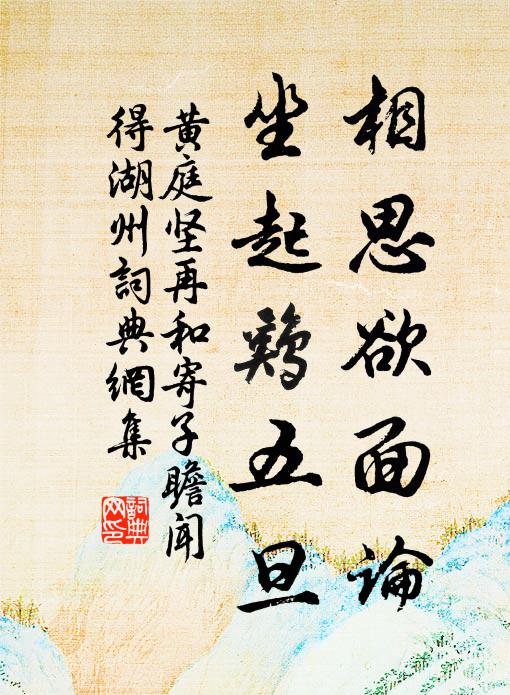 相思欲面論
坐起鷄五旦
黄庭坚再和寄子瞻闻
得湖州詞典網集
詞典
网印